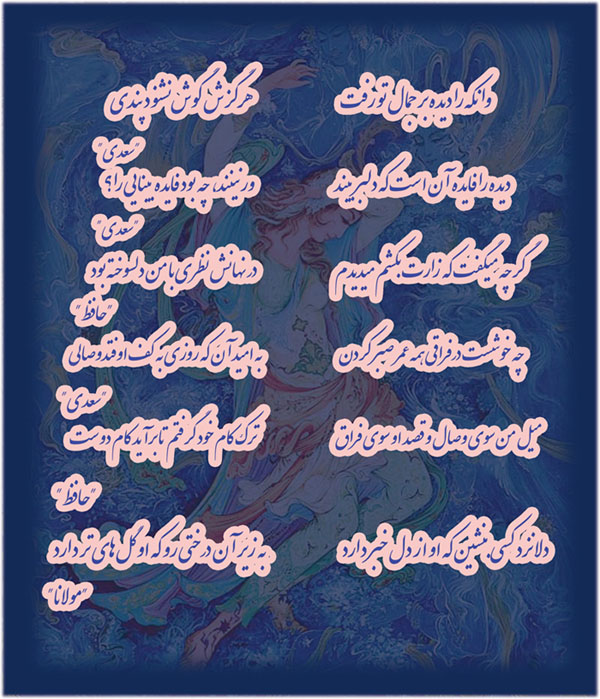 وانکه را دیده بر جمال تو رفت هرگزش گوش نشنود پندی
"سعدی"
دیده را فایده آن است که دلبر بیند ور نبیند، چه بود فایده بینایی را؟
"سعدی"
گر چه میگفت که زارت بکشم میدیدم در نهانش نظری با من دلسوخته بود
"حافظ"
چه خوشست در فراقی همه عمر صبر کردن به امید آن که روزی به کف اوفتد وصالی
"سعدی"
میل من سوی وصال و قصد او سوی فراق ترک کام خود گرفتم تا برآید کام دوست
"حافظ"
دلا نزد کسی بنشین که او از دل خبر دارد به زیر آن درختی رو که او گل های تر دارد
"مولانا"